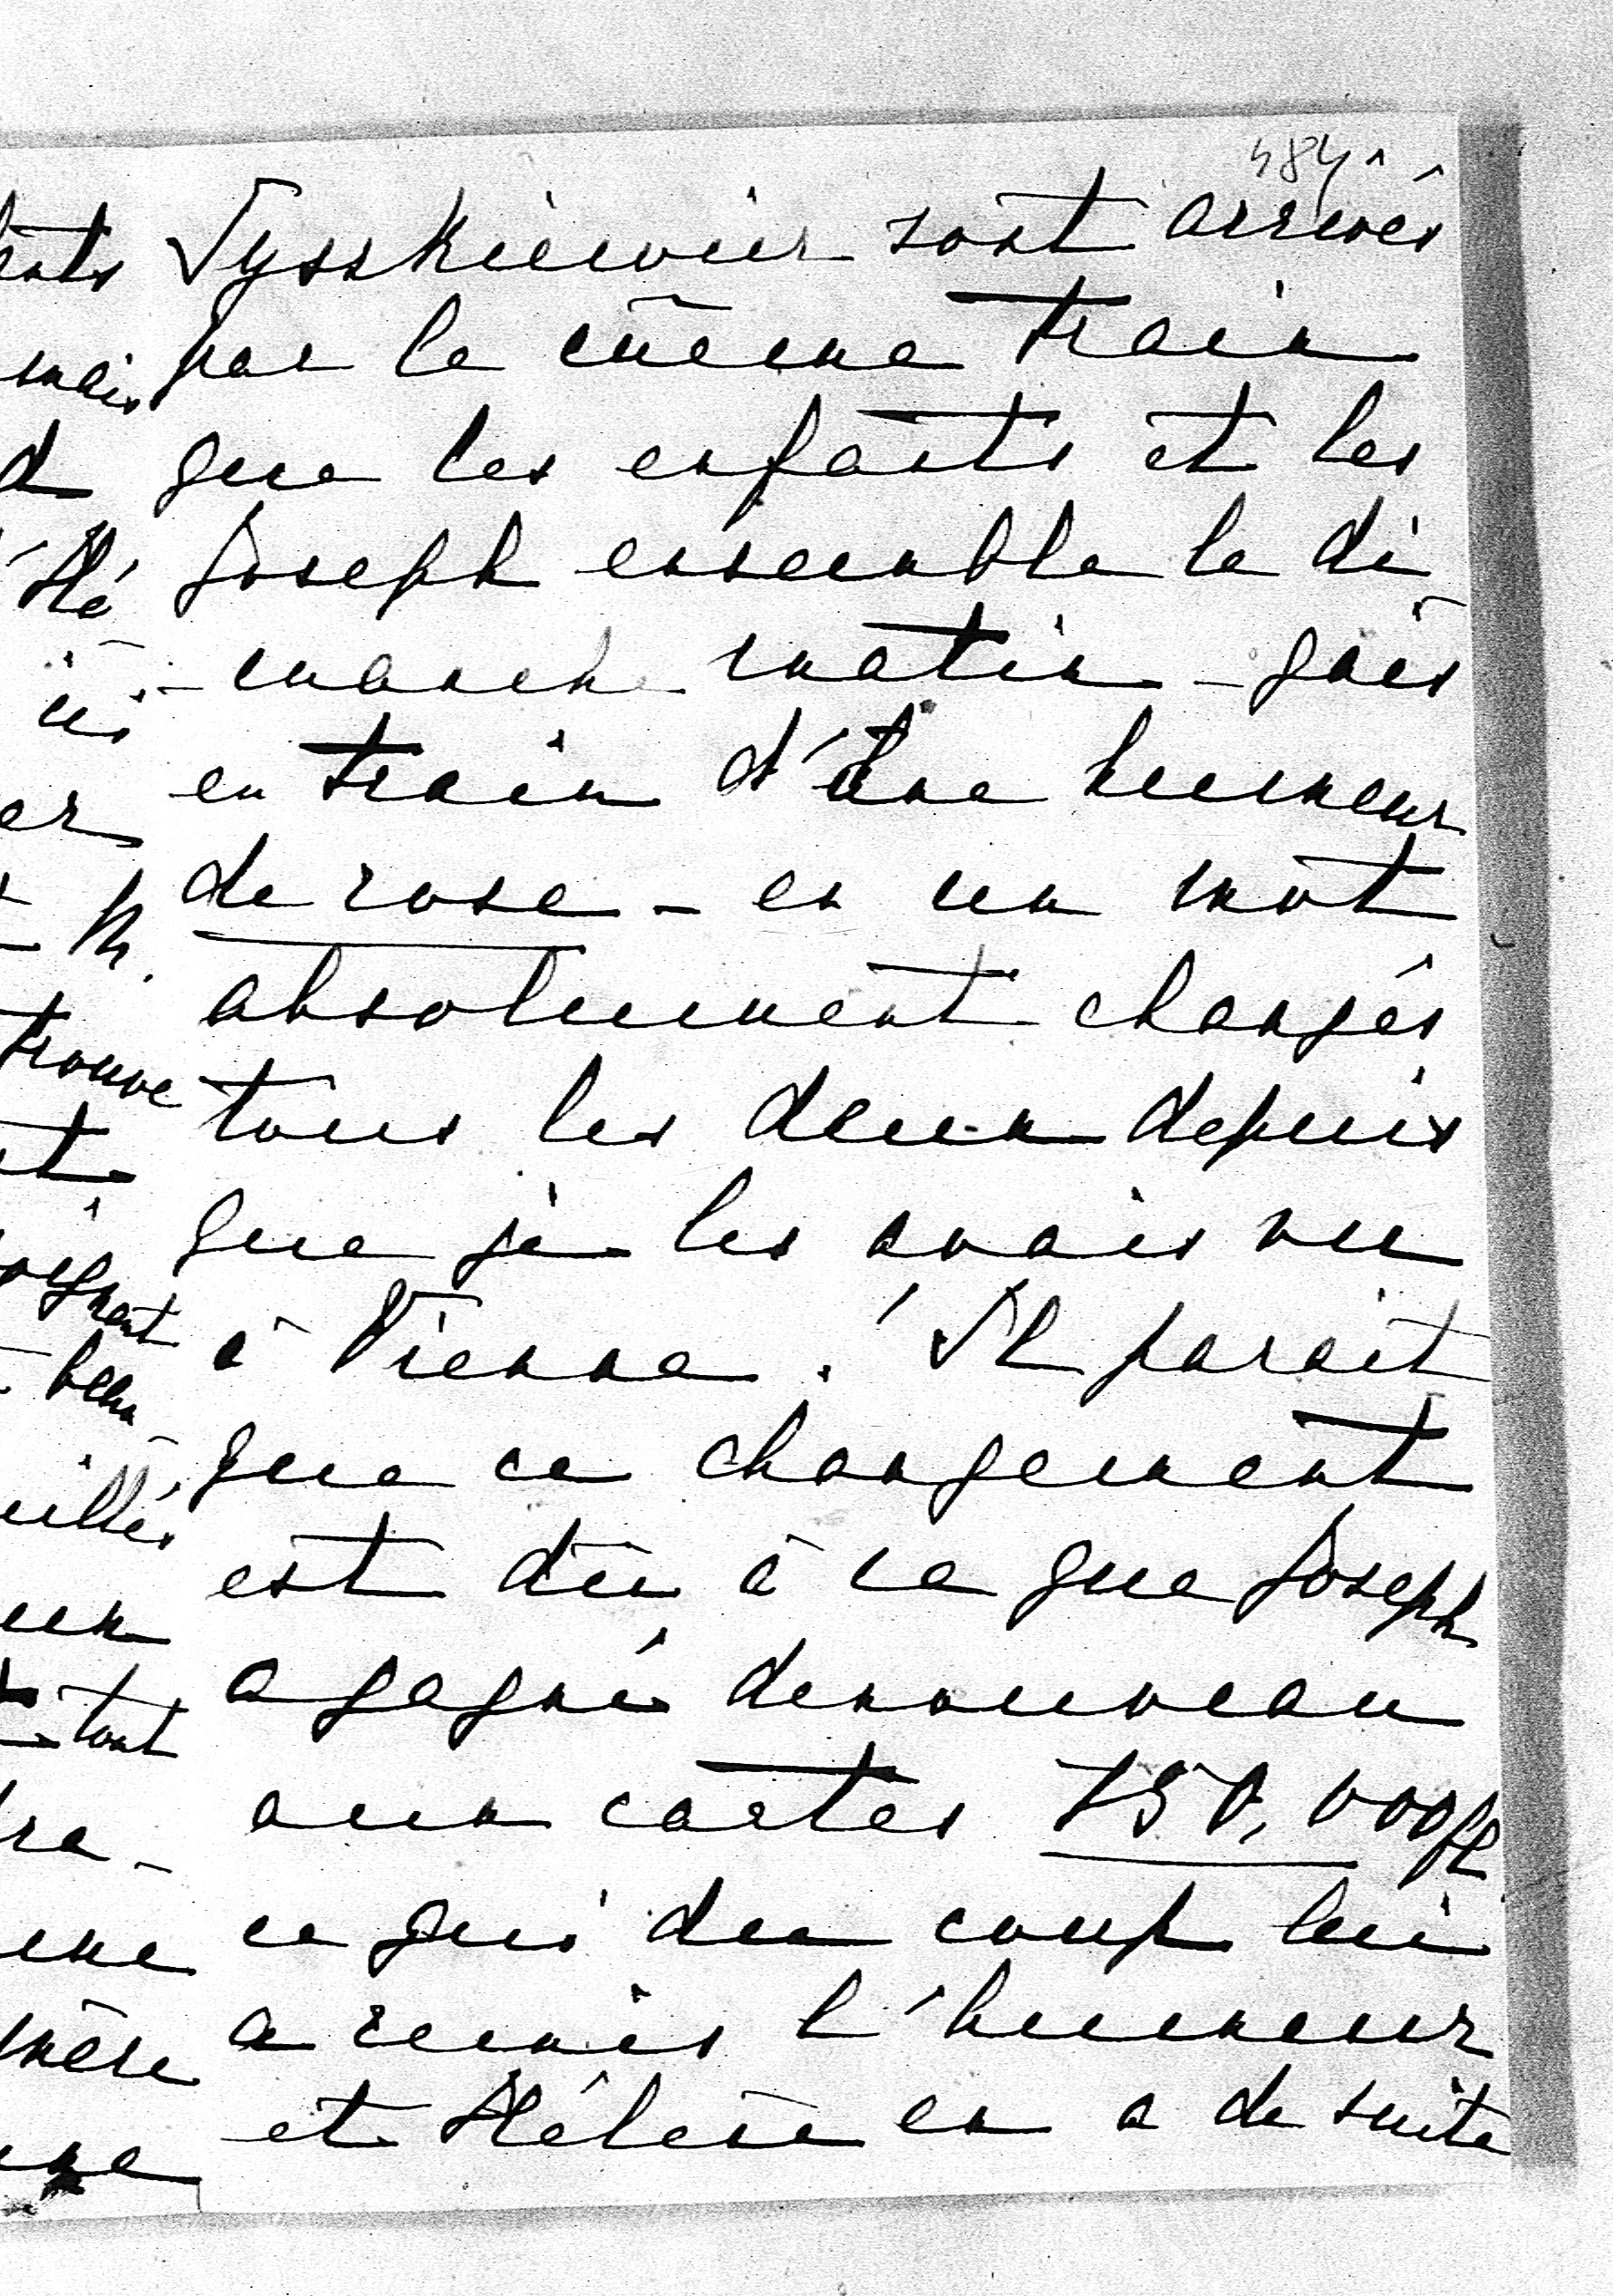 484
Tysskiewicz sont arrivés
par le même train
que les enfants et les
Joseph ensemble le di
-manche matin - gais
en train d'une humeur
de rose - en un mot
absolument changés
tous les deux depuis
que je les avais vu
à Vienne. Il parait
que ce changement
est dû à ce que Joseph
a gagné denouveau
aux cartes 750,000 fl
ce qui du coup lui
a remis l'humeur
et Hélène en a de suite
mais
trouve
tout